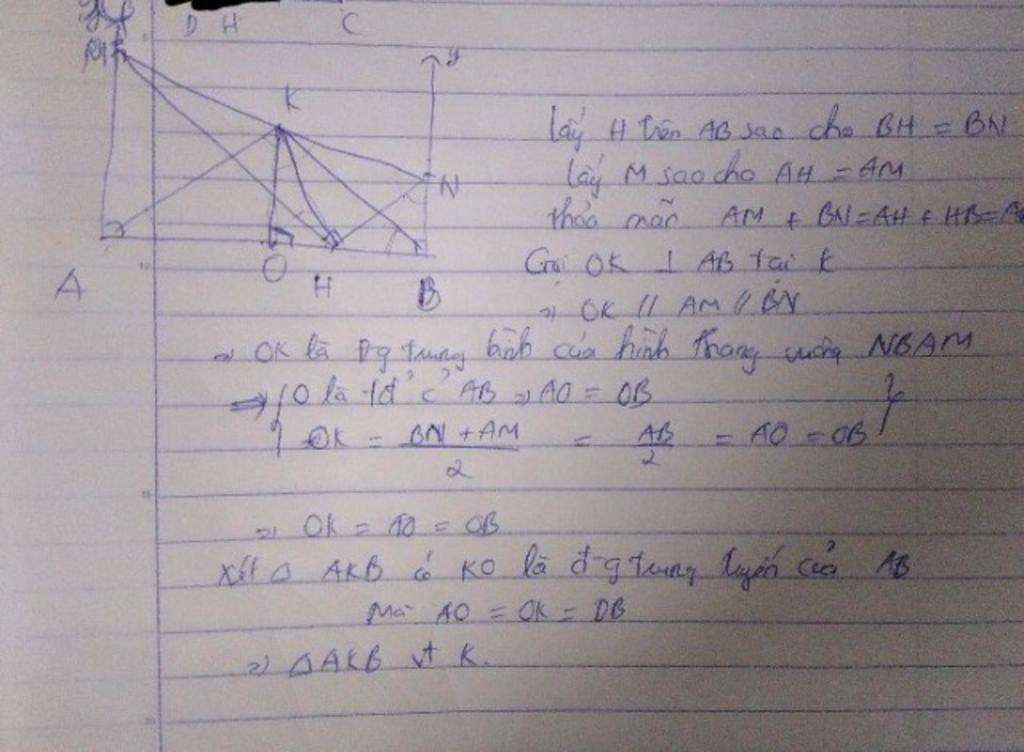 D H C
x
M
K
y
N
A
O H B
lấy H trên AB sao cho BH = BN
lấy M sao cho AH = AM
thỏa mãn AM + BN = AH + HB = A
Gọi OK ⊥ AB tại K
=> OK // AM // BN
=> OK là đg trung bình của hình thang vuông NBAM
=> { O là tđ' c' AB => AO = OB
OK = BN + AM / 2 = AB / 2 = AO = OB }
=> OK = AO = OB
Xét Δ AKB có KO là đ-g trung tuyến của AB
Mà AO = OK = OB
=> Δ AKB vt K.